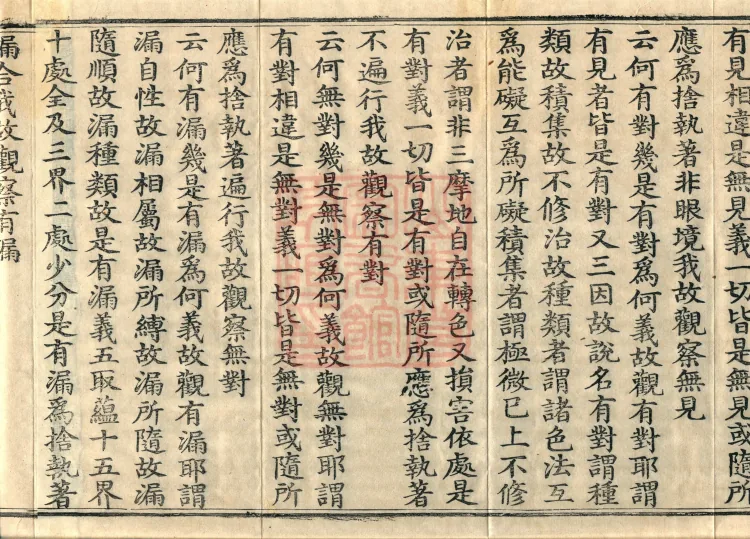 有見相違是無見義一切皆是無見或隨所
應爲捨執著非眼境我故觀察無見
云何有對幾是有對爲何義故觀有對耶謂
有見者皆是有對又三因故說名有對謂種
類故積集故不修治故種類者謂諸色法互
爲能礙互爲所礙積集者謂極微已上不修
治者謂非三摩地自在轉色又損害依處是
有對義一切皆是有對或隨所應爲捨執著
不遍行我故觀察有對
云何無對幾是無對爲何義故觀無對耶謂
有對相違是無對義一切皆是無對或隨所
應爲捨執著遍行我故觀察無對
云何有漏幾是有漏爲何義故觀有漏耶謂
漏自性故漏相屬故漏所縛故漏所隨故漏
隨順故漏種類故是有漏義五取蘊十五界
十處全及三界二處少分是有漏爲捨執著
漏合我故觀察有漏